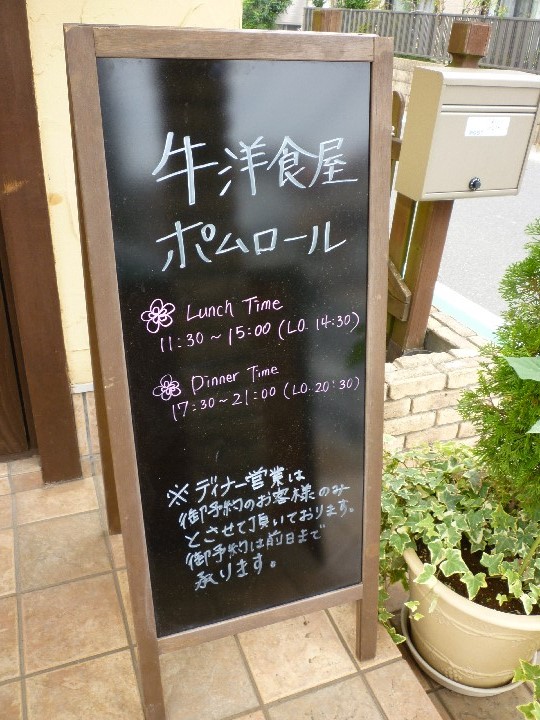 牛洋食屋
ポムロール
Lunch Time
11:30～15:00 (L.O. 14:30)
Dinner Time
17:30～21:00 (L.O. 20:30)
※ディナー営業は
御予約のお客様のみ
とさせて頂いております。
御予約は前日まで
承ります。